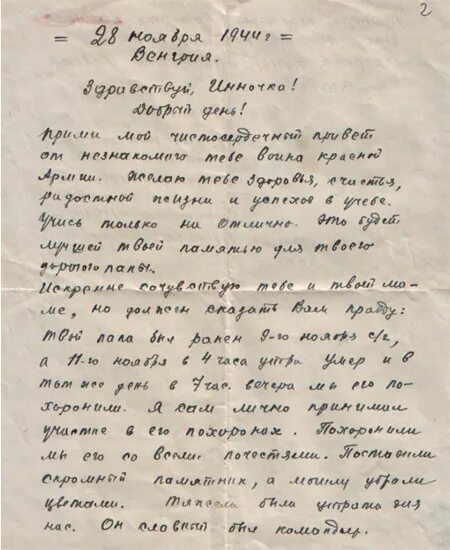 2
= 28 ноября 1944 г =
Венгрия.
Здравствуй, Инночка!
Добрый день!
Прими мой чистосердечный привет
от незнакомого тебе воина красной
Армии. Желаю тебе здоровья, счастья,
радостной жизни и успехов в учебе.
Учись только на отлично. Это будет
лучшей твоей памятью для твоего
дорогого папы.
Искренне сочувствую тебе и твоей ма-
ме, но должен сказать Вам правду:
Твой папа был ранен 9-го ноября с/г,
а 11-го ноября в 4 часа утра умер и в
тот же день в 7 час. вечера мы его по-
хоронили. Я сам лично принимал
участие в его похоронах. Похоронили
мы его со всеми почестями. Поставили
скромный памятник, а могилу убрали
цветами. Тяжела была утрата для
нас. Он славный был командир.